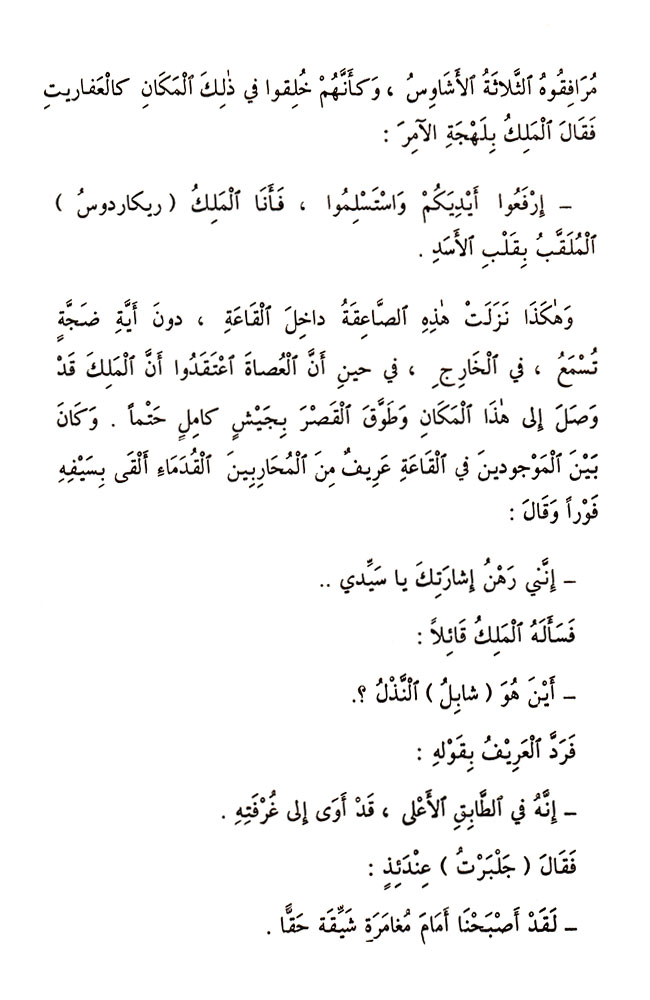 مُرَافِقُوهُ ٱلثَّلاثَةُ ٱلأَشَاوِسُ ، وَكَأَنَّهُمْ خُلِقوا في ذٰلِكَ ٱلْمَكَانِ كالْعَفاريتِ
فَقَالَ ٱلْمَلِكُ بِلَهْجَةِ الآمِرَ :
– إِرْفَعُوا أَيْدِيَكُمْ وَاسْتَسْلِمُوا ، فَأَنَا ٱلْمَلِكُ ( ريكاردوسُ )
ٱلْمُلَقَّبُ بِقَلْبِ ٱلأَسَدِ .
وَهٰكَذَا نَزَلَتْ هٰذِهِ ٱلصَّاعِقَةُ داخِلَ ٱلْقَاعَةِ ، دونَ أَيَّةِ ضَجَّةٍ
تُسْمَعُ ، في ٱلْخَارِجِ ، في حينِ أَنَّ ٱلْعُصاةَ ٱعْتَقَدُوا أَنَّ ٱلْمَلِكَ قَدْ
وَصَلَ إِلى هٰذَا ٱلْمَكَانِ وَطَوَّقَ ٱلْقَصْرَ بِجَيْشٍ كامِلٍ حَتْماً . وَكَانَ
بَيْنَ ٱلْمَوْجودينَ في ٱلْقَاعَةِ عَرِيفٌ مِنَ ٱلْمُحَارِبِينَ ٱلْقُدَمَاءِ أَلْقَى بِسَيْفِهِ
فَوْراً وَقَالَ :
– إِنَّني رَهْنُ إِشارَتِكَ يا سَيِّدي ..
فَسَأَلَهُ ٱلْمَلِكُ قَائِلاً :
– أَيْنَ هُوَ ( شابِلُ ) ٱلنَّذْلُ ؟.
فَرَدَّ ٱلْعَرِيفُ بِقَوْلِهِ :
– إِنَّهُ في ٱلطَّابِقِ ٱلأَعْلى ، قَدْ أَوَى إِلى غُرْفَتِهِ .
فَقَالَ ( جَلْبَرْتُ ) عِنْدَئِذٍ :
– لَقَدْ أَصْبَحْنَا أَمَامَ مُغامَرَةٍ شَيِّقَة حَقًّا .